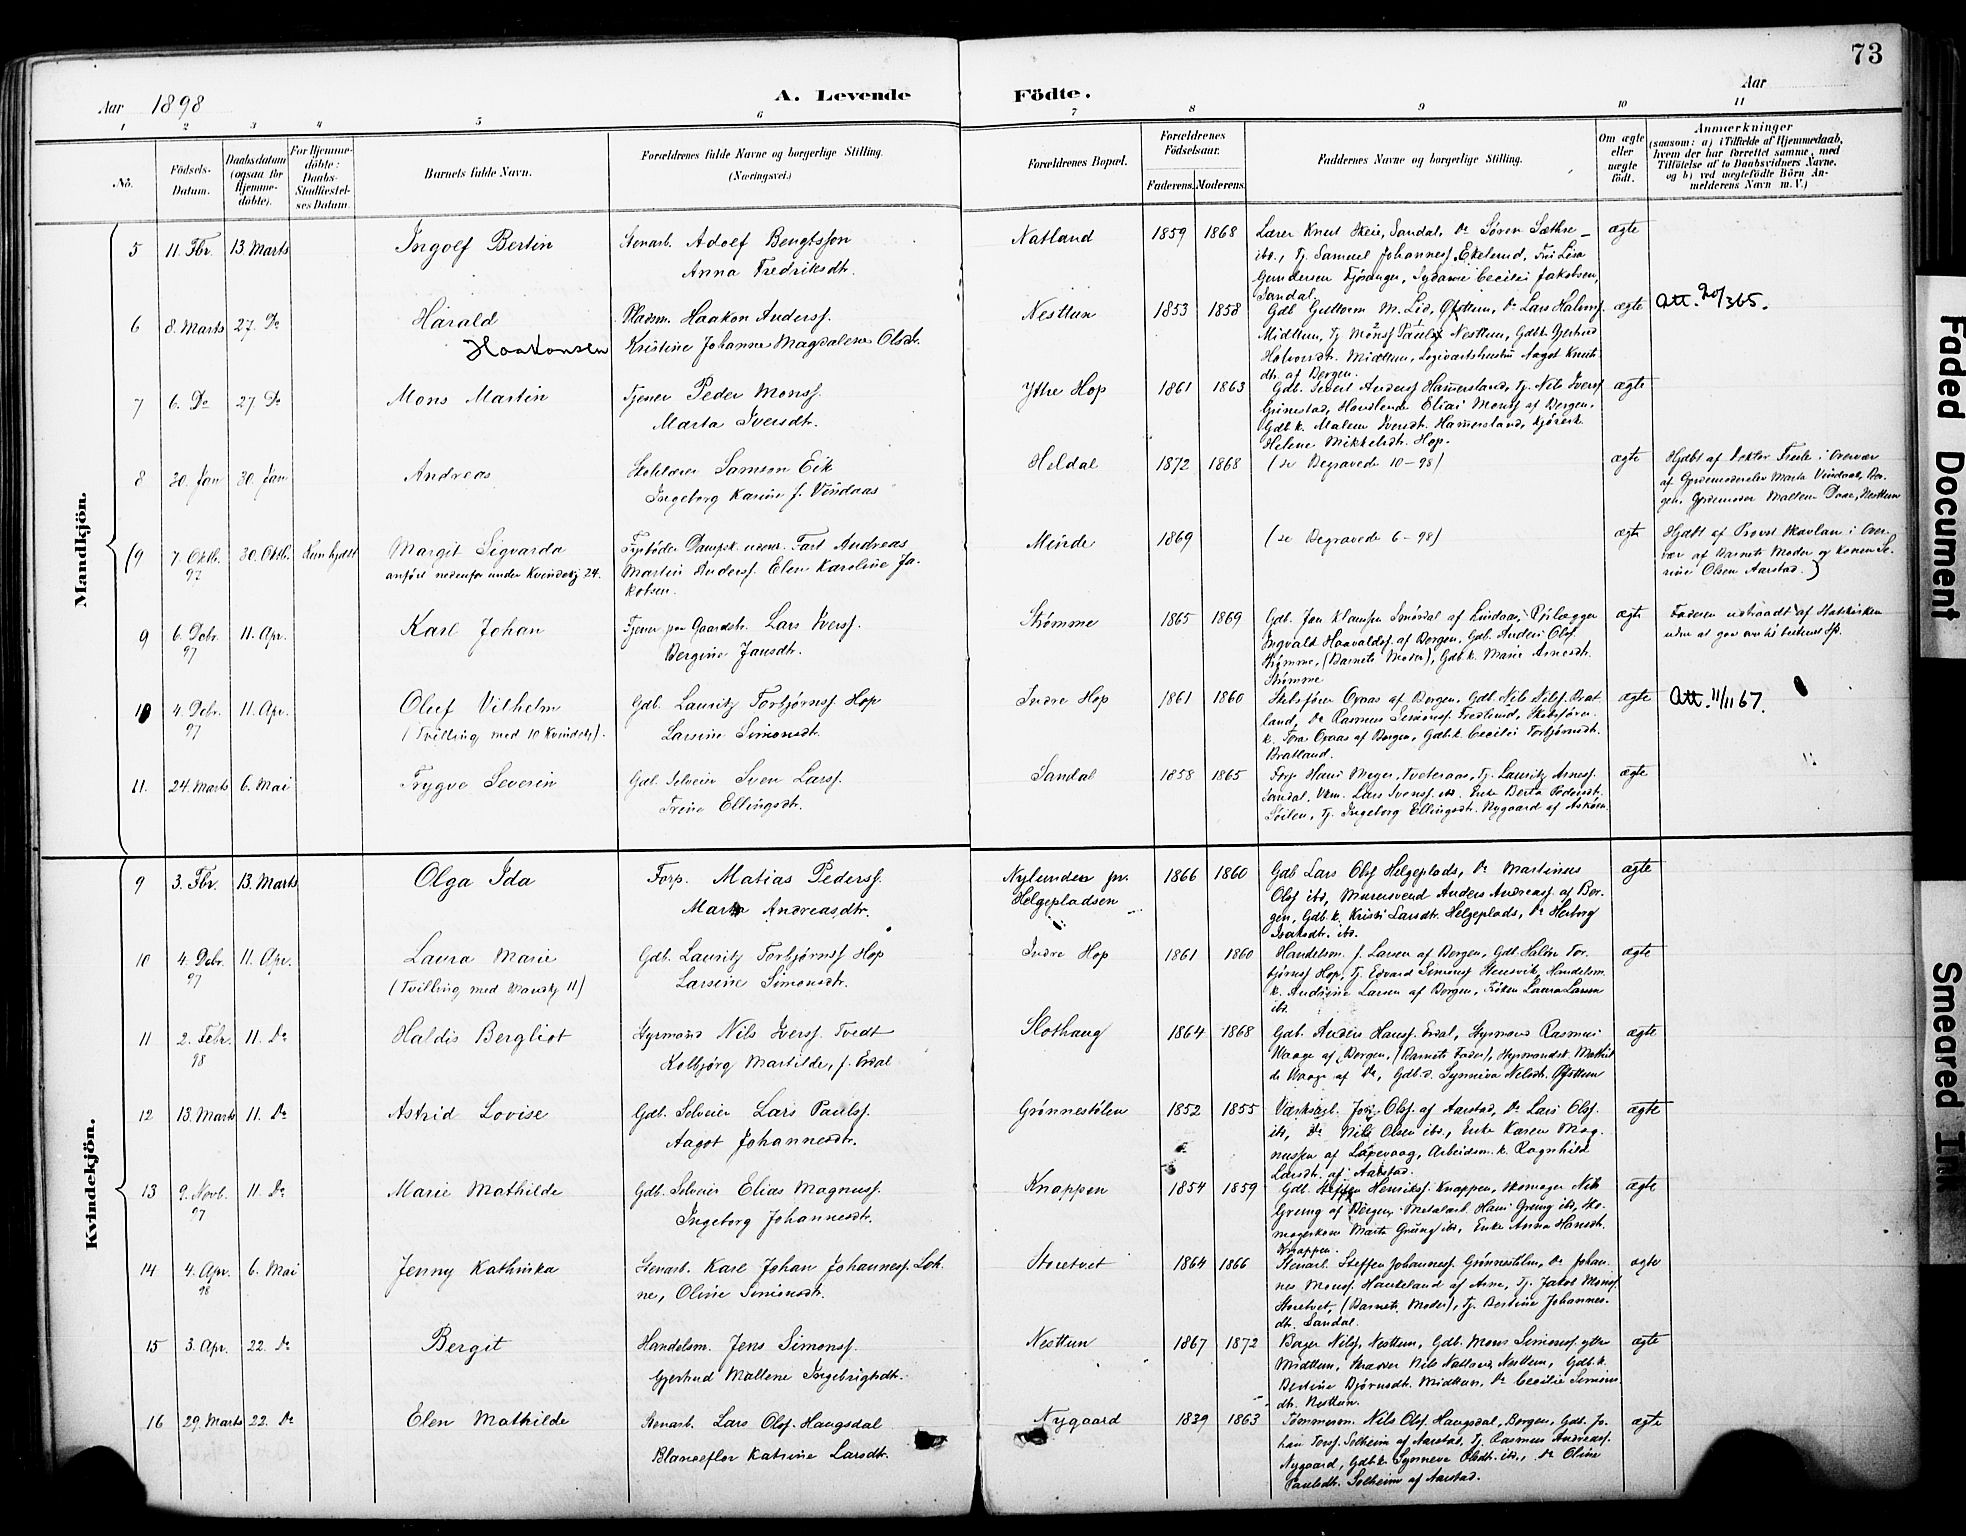 73
Aar 1898
A. Levende Födte.
Aar
1 2 3 4 5 6 7 8 9 10 11
No.
Födsels-Datum.
Daabsdatum (ogsaa for Hjemme-döbte).
For Hjemme-döbte: Daabs-Stadfæstel-ses Datum.
Barnets fulde Navn.
Forældrenes fulde Navne og borgerlige Stilling. (Næringsvei.)
Forældrenes Bopæl.
Forældrenes Födselsaar.
Faderens. Moderens.
Faddernes Navne og borgerlige Stilling.
Om ægte eller uægte födt.
Anmærkninger
(saasom: a) i Tilfælde af Hjemmedaab, hvem der har forrettet samme, med Tilföielse af to Daabsvidners Navne, og b) ved uægtefödte Börn An-melderens Navn m. V.)
Mandkjön.
5 11. Fbr. 13. Marts Ingolf Bertin
Stenarb. Adolf Bengtsson
Anna Fredriksdtr.
Natland 1859 1868
Lærer Knut Skeie, Sandal, Do Søren Sæthre
ibd., Tj. Samuel Johanness. Ekelund, Frk Lisa
Gundersen Fjøsanger, Sydame Cecilie Jakobsen,
Sandal.
ægte
6 8. Marts 27. Do Harald
Haakonsen
Pladsm. Haakon Anderss.
Kristine Johanne Magdalene Olsdtr.
Nesttun 1853 1858
Gdb. Guttorm M. Lid, Øvsttun, Do Lars Halvors.
Midttun, Tj. Mons Pauls Nesttun, Gdbk. Gjertrud
Holversdtr. Midttun, Logiværtshustru Aagot Knuts
dtr. af Bergen.
ægte
Att. 20/3 65.
7 6. Do 27 Do Mons Martin
Tjener Peder Monss.
Marta Iversdtr.
Ytre Hop 1861 1863
Gdb. Anderss. Hamersland, Tj. Nils Iverss.
Grimestad, Handlende Elias Monss. af Bergen,
Gdb k. Malene Iversdtr. Hamersland,
Helene Mikkelsdtr. Hop.
ægte
8 30. Jan 30. Jan Andreas
Samson Eik
Ingeborg Karine f. Vindaas
Heldal 1872 1868
(se Begravede 10-98)
ægte
Hjdbt af Doktor i Overvær
af Gjordemoderelev Marta Vindaas, Ber-
gen, Gjordemoder Malene Daae, Nesttun
(9 7. Oktb. 97 30. Oktb. Kun hjdbt Margit Sigvarda
anført nedenfor under Kvindekj 24.
Fyrbøder Dampsk. udenr. Fart Andreas
Martin Anderss. Elen Karoline Ja-
kobsen.
Minde 1869
(se Begravede 6-98)
ægte
Hjdbt af Provst Skavlan i Over-
vær af Barnets Moder og Konen Se-
rine Olsen Aarstad.)
9 6. Debr. 97 11. Apr. Karl Johan
Tjener paa Gaardsbr. Lars Iverss.
Bergine Jansdtr.
Strømme 1865 1869
Gdb. Jan Klaussen Smørdal af Lindaas,
Ingvald Haavaldss. af Bergen, Gdb. Anders Olss.
Strømme, (Barnets Moder), Gdb k. Marie Arnesdtr.
Strømme
ægte
Faderen udtraadt af Statskirken
uden at gaa over til bestemt
10 4. Debr. 97 11. Apr. Oluf Vilhelm
(Tvilling med 10 Kvindekj).
Gdb. Lauritz Torbjørnss. Hop
Larsine Simonsdtr.
Indre Hop 1861 1860
Skibsfører Opaas af Bergen, Gdb. Nils Nilss. Brat-
land, Do Rasmus Simonss. Fredlund, Skibsfører-
k. Tora Opaas af Bergen, Gdb k. Cecilie Torbjørnsdtr.
Bratland.
ægte
Att. 11/11 67.
11. 24. Marts 6. Mai Trygve Severin
Gdb. Selveier Sven Larss.
Trine Ellingsdtr.
Sandal 1858 1865
Forp. Hans Meyer, Tveteraas, Tj. Lauritz Arness.
Sandal, Lars Svenss. ibd. Enke Berta Pedersdtr.
Tj. Ingeborg Ellingsdtr. Nygaard af Askøen.
ægte
Kvindekjön.
9 3. Fbr. 13. Marts Olga Ida
Forp. Matias Pederss.
Marta Andreasdtr.
Nylunden pr.
Helgepladsen
1866 1860
Gdb Lars Olss Helgeplads, Do Martinus
Olss ibd, Murersvend Anders Andreass af Ber-
gen, Gdb. k. Kristi Larsdtr. Helgeplads, Do Herborg
Isaksdtr. ibd.
ægte
10 4. Debr. 97 11. Apr. Laura Marie
(Tvilling med Mandkj 11)
Gdb. Lauritz Torbjørnss Hop
Larsine Simonsdtr.
Indre Hop 1861 1860
Handelsm. J. Larsen af Bergen, Gdb. Halvor Tor-
bjørnss Hop, Tj. Edvard Simonss Stensvik, Handelsm.
k. Andrine Larsen af Bergen, Frøken Laura Larsen
ibd.
ægte
11 2. Febr. 98 11. Do Haldis Bergliot
Styrmand Nils Iverss. Tvedt
Kolbjørg Martilde, f. Erdal
Slothaug 1864 1868
Gdb. Anders Hanss. Erdal, Styrmand Rasmus
Waage af Bergen, (Barnets Fader), Styrmandsk. Mathil
de Waage af Do, Gdb. d. Synneva Nilsdtr. Øvsttun
ægte
12 13. Marts 11. Do Astrid Lovise
Gdb. Selveier Lars Paulss.
Aagot Johannesdtr.
Grønnestølen 1852 1855
Olss. af Aarstad, Do Lars Olss.
ibd, Do Nils Olsen ibd., Enke Karen Mag-
nussen af Laxevaag, Arbeidsm. k. Ragnhild
Larsdtr. af Aarstad.
ægte
13 9. Novb. 97 11. Do Marie Mathilde
Gdb. Selveier Elias Magnuss.
Ingeborg Johannesdtr.
Knappen 1854 1859
Gdb. Steffen Henrikss. Knappen, Skomager Nils
Grung af Bergen, Metalarb. Hans Grung ibd, Sko-
magerkone Marta Grung ibd, Enke Anna Hansdtr.
Knappen.
ægte
14 4. Apr. 98 6. Mai Jenny Kathinka
Stenarb. Karl Johan Johanness. Loh-
ne, Oline Simonsdtr.
Storetvet 1864 1866
Stenarb. Steffen Johanness. Grønnestølen, Do Johan-
nes Monss. Haukeland af Arne, Tj. Jakob Monss.
Storetvet, (Barnets Moder), Tj. Bertine Johannes-
dtr. Sandal.
ægte
15 3. Apr. 22. Do Bergit
Handelsm. Jens Simonss.
Gjertrud Mallene Ingebrigtsdtr.
Nesttun 1867 1872
Bager Nilss. Nesttun, Gdb. Mons Simonss ytre
Midttun, Skræder Nils Nesttun, Gdb. k.
Bertine Bjørnsdtr. Midttun, Do Cecilie Simons
dtr. Nesttun.
ægte
16 29. Marts 22. Do Elen Mathilde
Stenarb. Lars Olss. Haugsdal
Blanceflor Katrine Larsdtr.
Nygaard 1839 1863
Tømmerm. Nils Olss. Haugsdal, Bergen, Gdb. Jo-
han Solheim af Aarstad, Tj. Rasmus Andreass.
Nygaard, Gdb k. Synneva Olsdtr. ibd., Do Oline
Paulsdtr. Solheim af Aarstad.
ægte
Faded Document
Smeared Ink